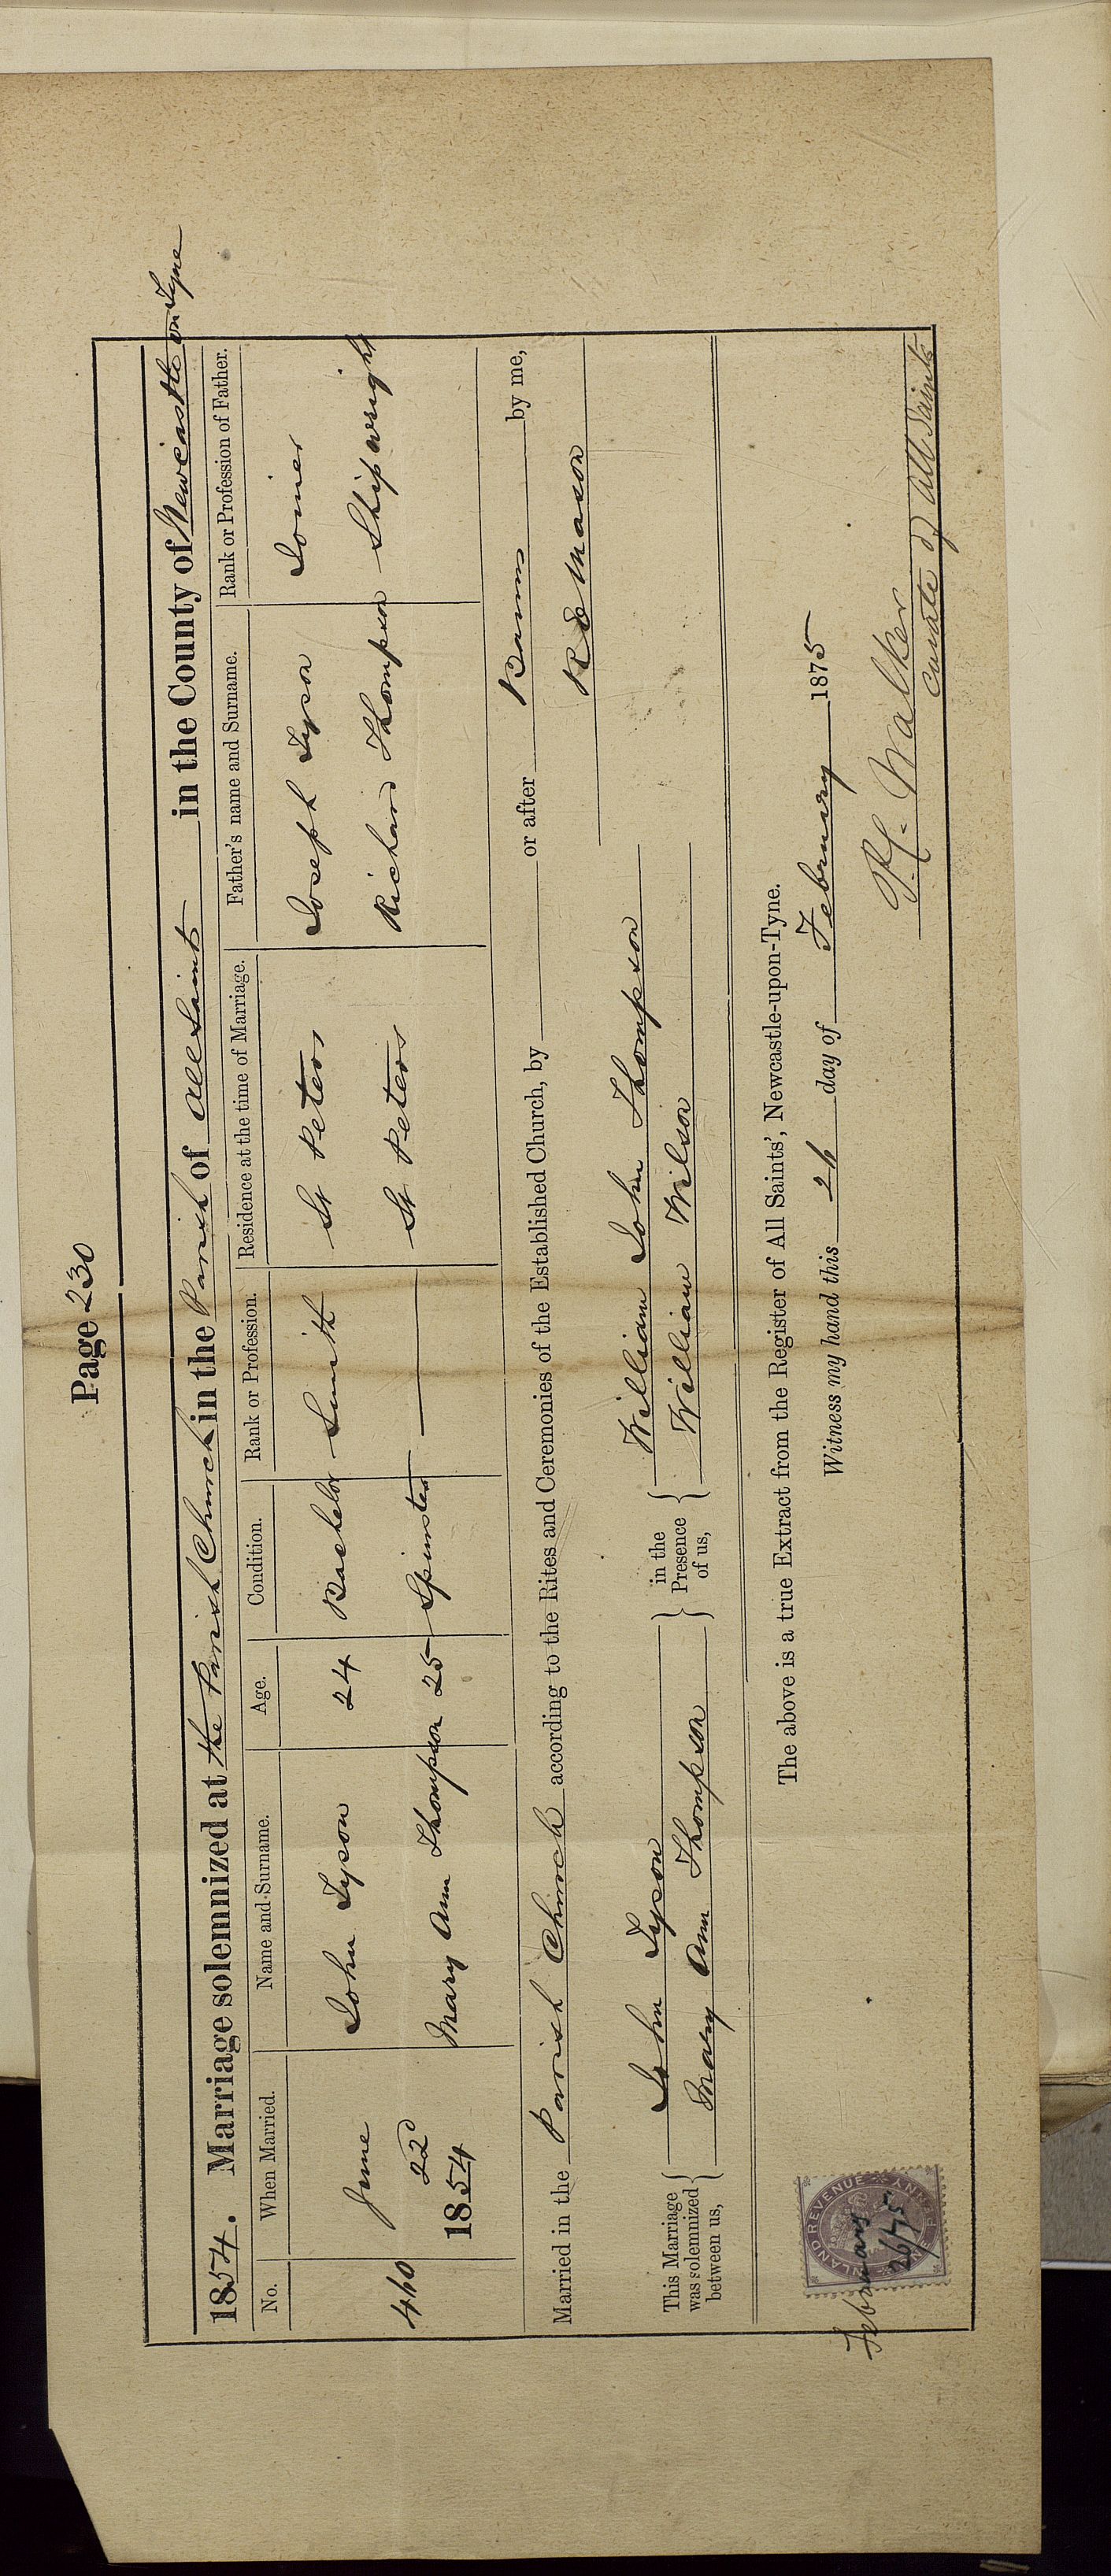 Page 230
1854. Marriage solemnized at the Parish Church in the Parish of All Saints in the County of Newcastle on Tyne
No. When Married. Name and Surname. Age. Condition. Rank or Profession. Residence at the time of Marriage. Father's name and Surname. Rank or Profession of Father.
June John Tyson 24 Bachelor Smith St Peters Joseph Tyson Joiner
460 22d Mary Ann Thompson 25 Spinster St Peters Richard Thompson Shipwright
1854
Married in the Parish Church according to the Rites and Ceremonies of the Established Church, by or after Banns by me,
R E Mason
This Marriage was solemnized between us, John Tyson in the Presence of us, William John Thompson
Mary Ann Thompson William Wilson
The above is a true Extract from the Register of All Saints', Newcastle-upon-Tyne.
Witness my hand this 26 day of February 1875
Walker
Curate of All Saints
INLAND REVENUE
ONE PENNY
February
26/75